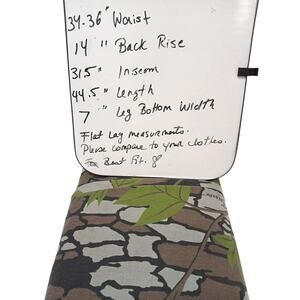 34-36" Waist
14 " Back Rise
31.5" Inseam
44.5" Length
7 " Leg Bottom Width
Flat Lay measurements.
Please compare to your clothes.
For Best Fit.